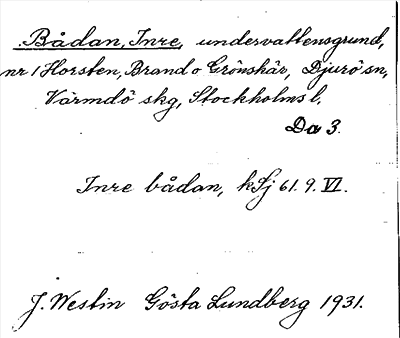 Bådan, Inre, undervattensgrund,
nr / Horsten, Brand o Grönskär, Djurö sn,
Värmdö skg, Stockholms l.
Da 3.
Inre bådan, kSj 61. 9. VI.
J. Westin Gösta Lundberg 1931.